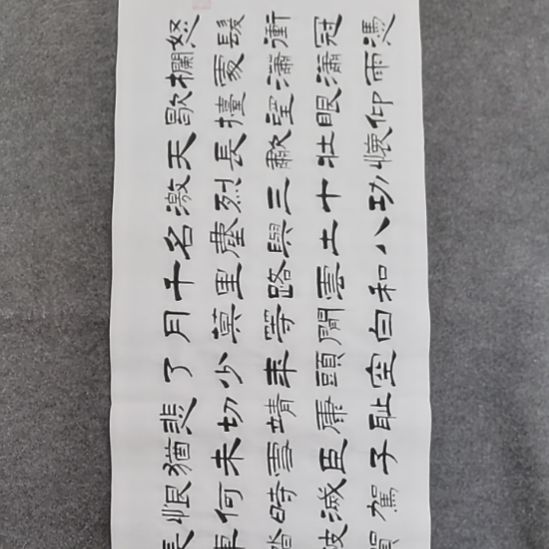 怒髮衝冠憑
欄處瀟瀟雨
歇擡望眼仰
天長歗壯懷
激烈三十功
名塵與土八
千里路雲和
月莫等閒白
了少秊頭空
悲切靖康恥
猶未雪臣子
恨何時滅駕
長車踏破賀